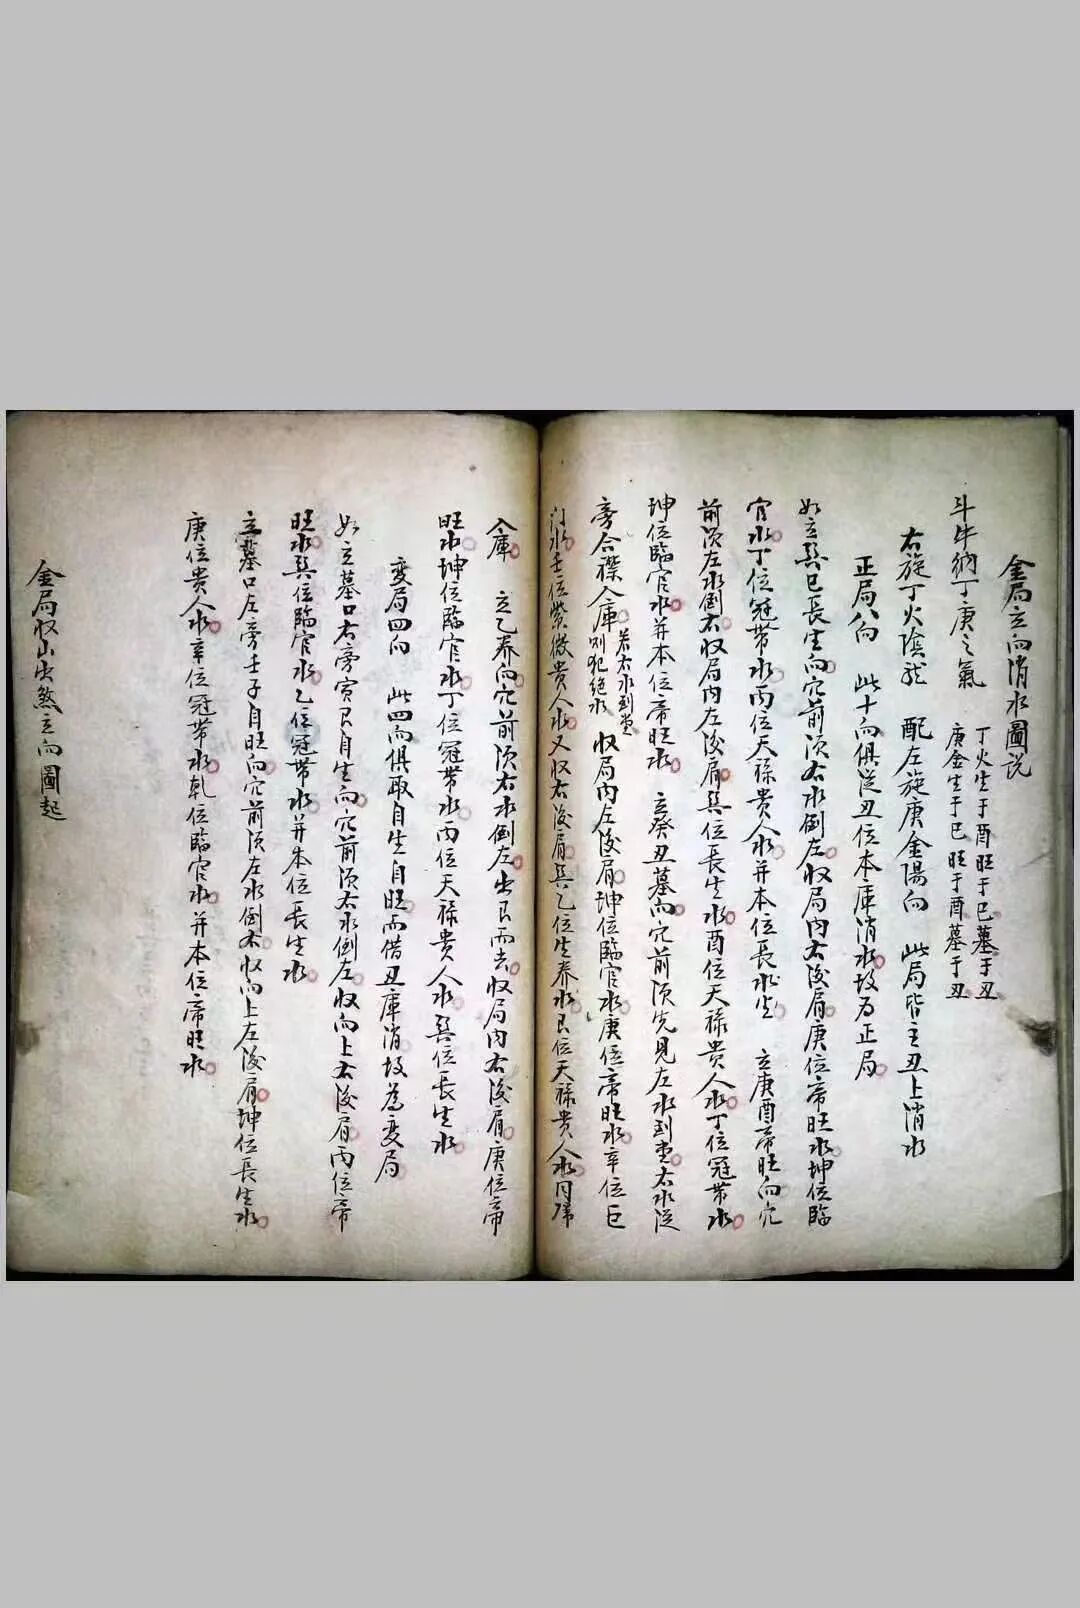 金局立向消水圖説
斗牛納丁庚之氣 丁火生于酉旺于巳墓于丑 庚金生于巳旺于酉墓于丑
右旋丁火陰龙 配左旋庚金陽向 此局皆主丑上消水
正局八向 此十向俱從丑位本庫消水故为正局
如立巽巳長生向穴前須右水倒左收局内右後肩庚位帝旺水坤位臨
官水丁位冠帶水丙位天禄貴人水并本位長水生 立庚酉帝旺向穴
前須左水倒右收局内左後肩巽位長生水酉位天禄貴人水丁位冠帶水
坤位臨官水并本位帝旺水 立癸丑墓向穴前須先見左水到堂右水從
旁合襟入庫 若右水到堂則犯绝水 收局内左後肩坤位臨官水庚位帝旺水辛位巨
门水壬位紫微貴人水又收右後肩巽乙位生养水艮位天禄貴人水同歸
入庫 立乙养向穴前須右水倒左出艮而去收局内右後肩庚位帝
旺水坤位臨官水丁位冠帶水丙位天禄貴人水巽位長生水
变局四向 此四向俱取自生自旺而借丑庫消故為变局
如立墓口右旁寅艮自生向穴前須右水倒左收向上右後肩丙位帝
旺水巽位臨官水乙位冠帶水并本位長生水
立墓口左旁壬子自旺向穴前須左水倒右收向上左後肩坤位長生水
庚位貴人水辛位冠帶水乾位臨官水并本位帝旺水
金局收山出煞立向圖起